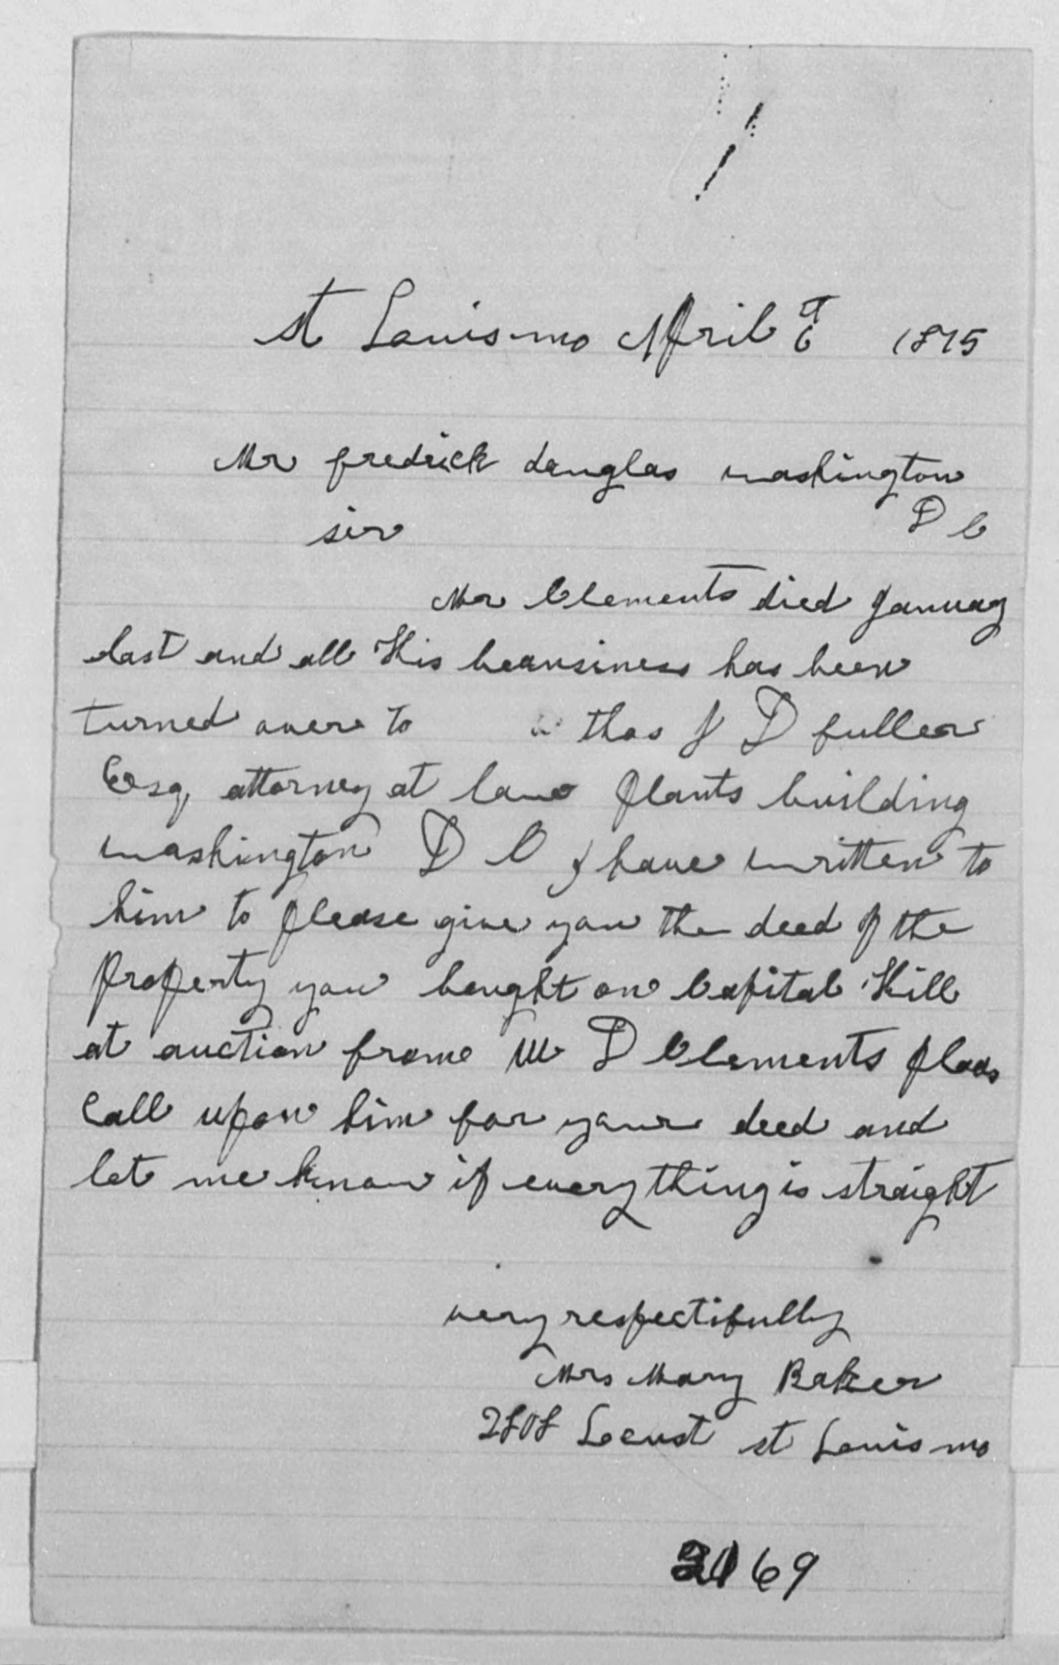 st Louis mo April 6 1875
Mr fredrick douglas washington
sir D C
Mr Clements died January
last and all His beausiness has been
turned over to thos J D fuller
Esq, attorney at law plants building
washington D C I have written to
him to please give you the deed of the
property you bought on Capital Hill
at auction frome W D Clements pleas
Call upon him for your deed and
let me know if every thing is straight
very respectifully
Mrs Mary Baker
2808 Locust st Louis mo
69